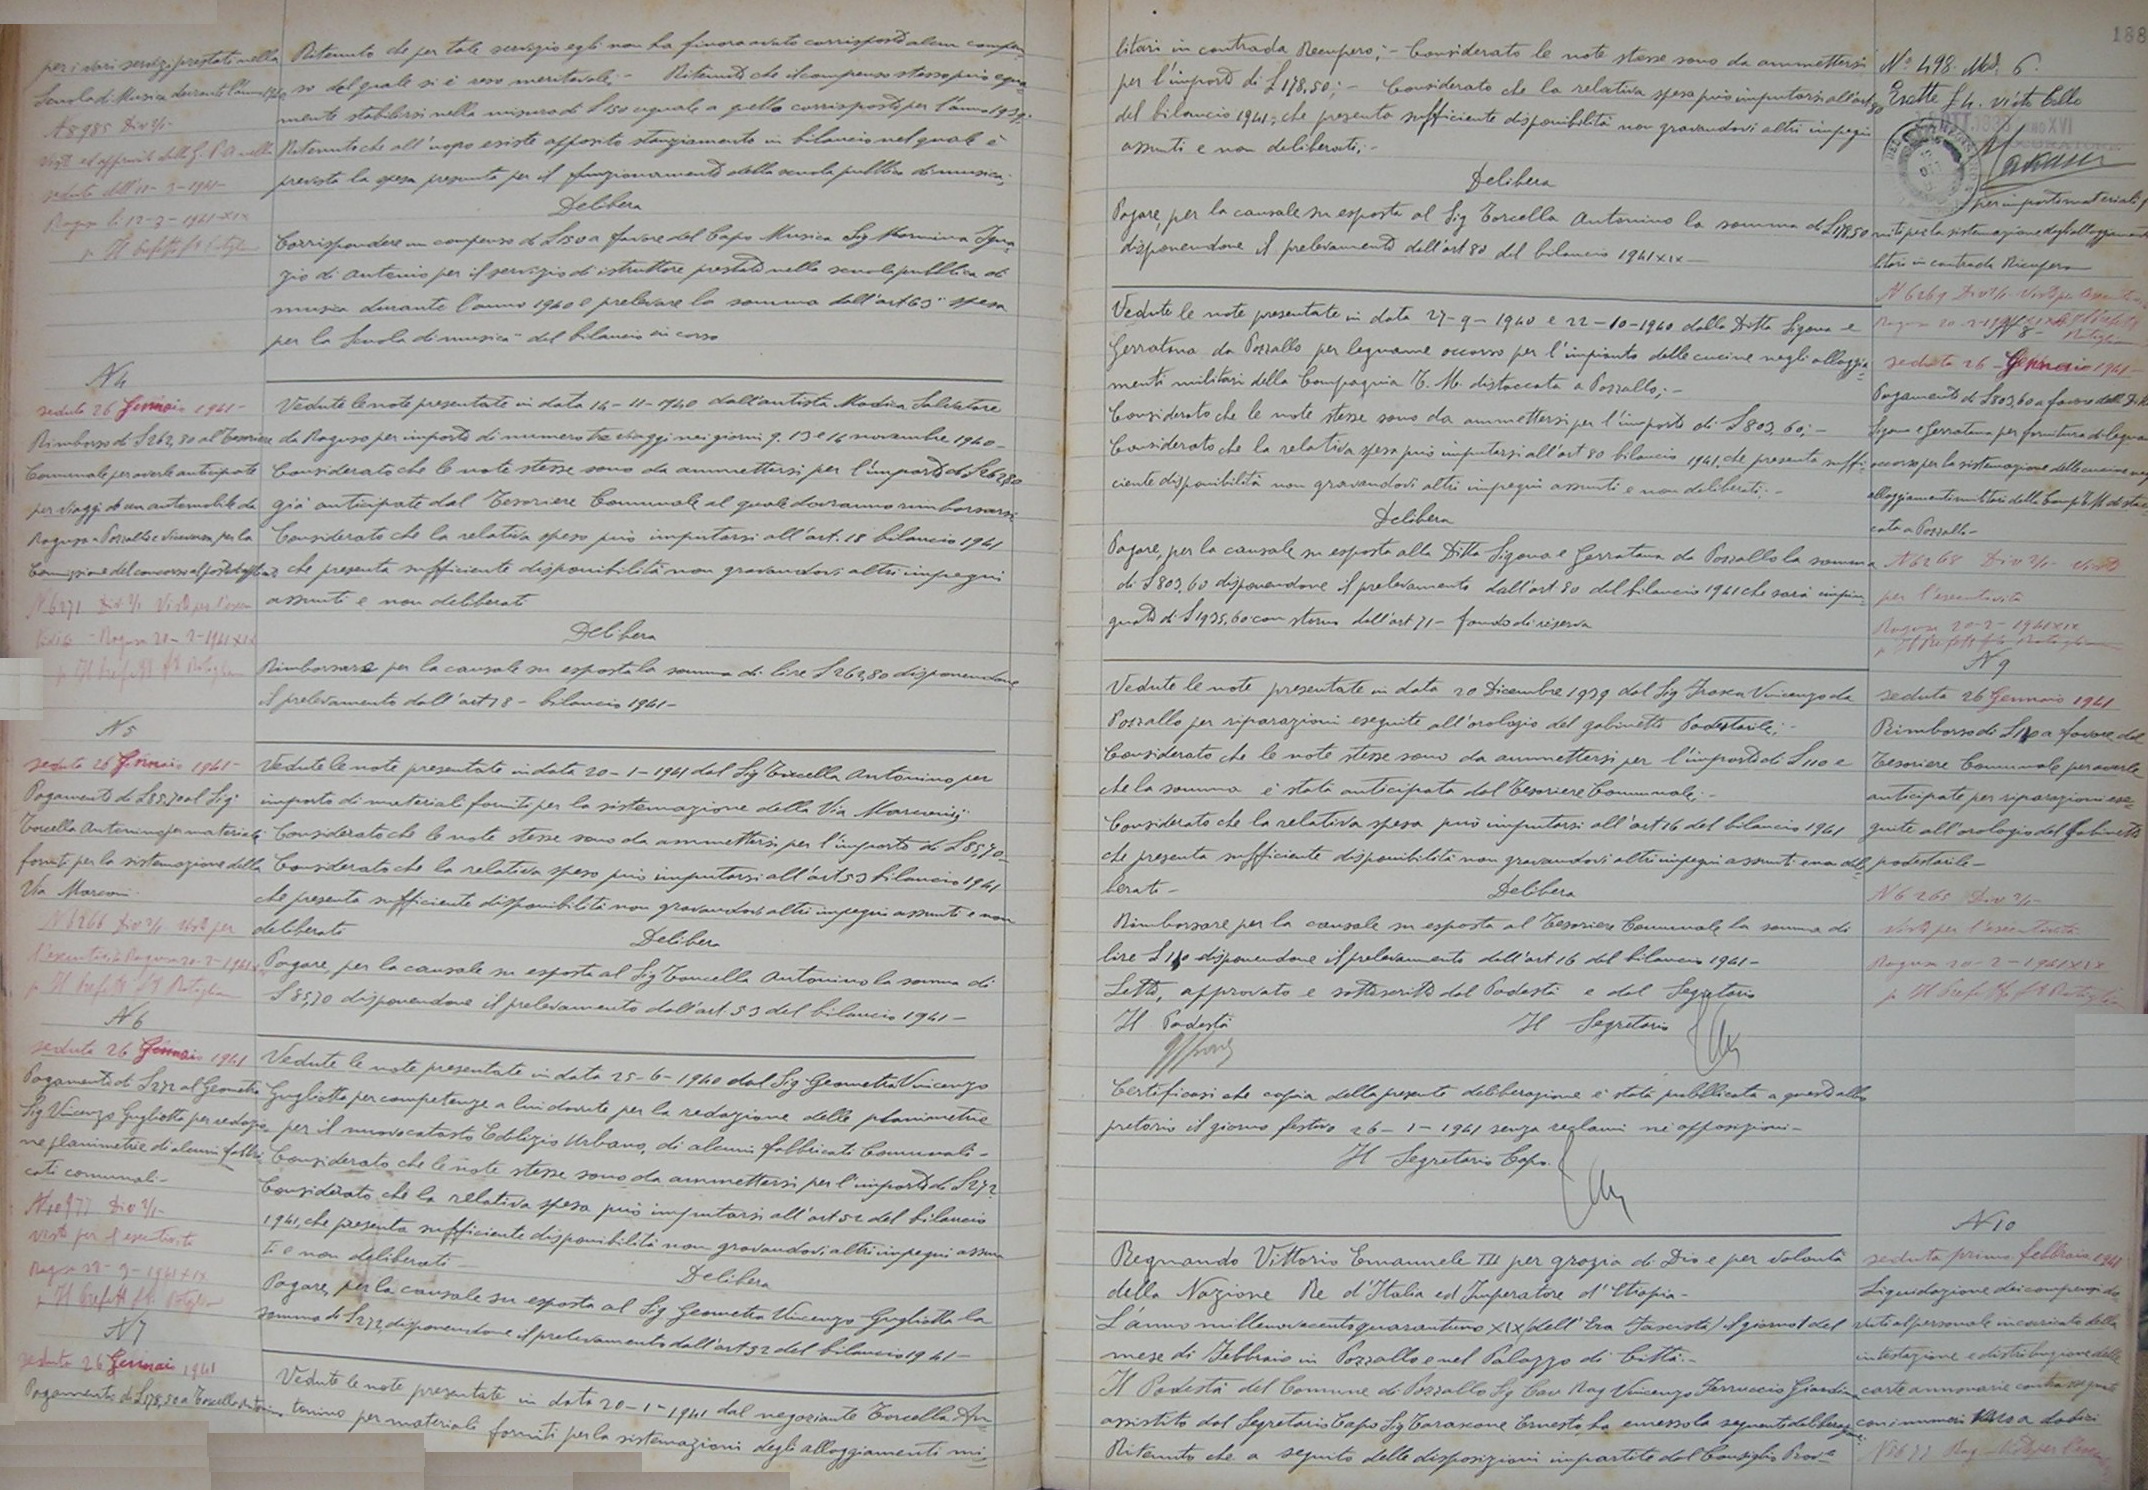 per i vari servizi prestati nella
Scuola di Musica durante l'anno 1940
N 5985 Div 2/1-
seduta dell'11-3-1941-
Ragusa li 12-3-1941-XIX
p. Il Prefetto
N 4
seduta 26 Gennaio 1941-
Rimborso di £262,80 al Tesoriere
Comunale per averle anticipate
per viaggi di un automobile da
Ragusa a Pozzallo e viceversa per la
Commissione del concorso al posto
N 6271 Div 2/1 Visto per l'esecu
tività - Ragusa 20-2-1941 XIX
p. Il Prefetto
N 5
seduta 26 Gennaio 1941-
Pagamento di £85,70 al Sig.
Torcella Antonino per materiali
forniti per la sistemazione della
Via Marconi.
N 6266 Div 2/1 Visto per
l'esecutività Ragusa 20-2-1941
p. Il Prefetto
N 6
seduta 26 Gennaio 1941
Pagamento di £272 al Geometra
Sig Vincenzo Gugliotta per redazio
ne planimetrie di alcuni fabbri
cati comunali-
Div 2/1-
visto per l'esecutività
p. Il Prefetto
N 7
seduta 26 Gennaio 1941
Pagamento di £178,50 a Torcella Antonino
Ritenuto che per tale servizio egli non ha finora avuto corrisposto alcun compen
so del quale si è reso meritevole;- Ritenuto che il compenso stesso può equa-
mente stabilirsi nella misura di £150 uguale a quello corrisposto per l'anno 1939;
Ritenuto che all'uopo esiste apposito stanziamento in bilancio nel quale è
prevista la spesa presunta per il funzionamento della scuola pubblica di musica;
Delibera
Corrispondere un compenso di £150 a favore del Capo Musica Sig Igna-
zio di Antonio per il servizio di istruttore prestato nella scuola pubblica di
musica durante l'anno 1940 e prelevare la somma dall'art 63 "spesa
per la Scuola di musica" del bilancio in corso
Vedute le note presentate in data 14-11-1940 dall'autista Modica Salvatore
da Ragusa per importo di numero tre viaggi nei giorni 9, 13 e 14 novembre 1940-
Considerato che le note stesse sono da ammettersi per l'importo di £262,80
già anticipate dal Tesoriere Comunale al quale dovranno rimborsarsi
Considerato che la relativa spesa può imputarsi all'art. 18 bilancio 1941
che presenta sufficiente disponibilità non gravandovi altri impegni
assunti e non deliberati
Delibera
Rimborsare per la causale su esposta la somma di lire £262,80 disponendone
il prelevamento dall'art 18 - bilancio 1941-
Vedute le note presentate in data 20-1-1941 dal Sig Torcella Antonino per
importo di materiali forniti per la sistemazione della Via Marconi;
Considerato che le note stesse sono da ammettersi per l'importo di £85,70-
Considerato che la relativa spesa può imputarsi all'art 53 bilancio 1941
che presenta sufficiente disponibilità non gravandovi altri impegni assunti e non
deliberati
Delibera
Pagare, per la causale su esposta al Sig Torcella Antonino la somma di
£85,70 disponendone il prelevamento dall'art. 53 del bilancio 1941-
Vedute le note presentate in data 25-6-1940 dal Sig Geometra Vincenzo
Gugliotta per competenze a lui dovute per la redazione delle planimetrie
per il nuovo catasto Edilizio Urbano, di alcuni fabbricati Comunali-
Considerato che le note stesse sono da ammettersi per l'importo di £272
Considerato che la relativa spesa può imputarsi all'art 52 del bilancio
1941, che presenta sufficiente disponibilità non gravandovi altri impegni assun
ti e non deliberati-
Delibera
Pagare, per la causale su esposta al Sig Geometra Vincenzo Gugliotta la
somma di £272, disponendone il prelevamento dall'art 52 del bilancio 1941-
Vedute le note presentate in data 20-1-1941 dal negoziante Torcella An-
tonino per materiali forniti per la sistemazioni degli alloggiamenti mi-
litari in contrada Recupero;- Considerato le note stesse sono da ammettersi
per l'importo di £178,50;- Considerato che la relativa spesa può imputarsi all'art 80
del bilancio 1941; che presenta sufficiente disponibilità non gravandovi altri impegni
assunti e non deliberati;-
Delibera
Pagare, per la causale su esposta al Sig Torcella Antonino la somma di £178,50
disponendone il prelevamento dall'art 80 del bilancio 1941 XIX-
Vedute le note presentate in data 27-9-1940 e 22-10-1940 dalla Ditta Sigona e
Gerratana da Pozzallo per legname occorso per l'impianto delle cucine negli alloggia-
menti militari della Compagnia T. M. distaccata a Pozzallo;-
Considerato che le note stesse sono da ammettersi per l'importo di £803,60;-
Considerato che la relativa spesa può imputarsi all'art 80 bilancio 1941, che presenta suffi
ciente disponibilità non gravandovi altri impegni assunti e non deliberati;-
Delibera
Pagare, per la causale su esposta alla Ditta Sigona e Gerratana da Pozzallo la somma
di £803,60 disponendone il prelevamento dall'art 80 del bilancio 1941 che sarà impin
guato di £1935,60 con storno dall'art 71- fondo di riserva
Vedute le note presentate in data 20 Dicembre 1939 dal Sig Frasca Vincenzo da
Pozzallo per riparazioni eseguite all'orologio del gabinetto Podestarile;-
Considerato che le note stesse sono da ammettersi per l'importo di £110 e
che la somma è stata anticipata dal Tesoriere Comunale;-
Considerato che la relativa spesa può imputarsi all'art 16 del bilancio 1941
che presenta sufficiente disponibilità non gravandovi altri impegni assunti e non deli
berati-
Delibera
Rimborsare per la causale su esposta al Tesoriere Comunale la somma di
lire £110 disponendone il prelevamento dall'art 16 del bilancio 1941-
Letto, approvato e sottoscritto dal Podestà e dal Segretario
Il Podestà Il Segretario
Certificasi che copia della presente deliberazione è stata pubblicata a quest'albo
pretorio il giorno festivo 26-1-1941 senza reclami nè opposizioni-
Il Segretario Capo.
Regnando Vittorio Emanuele III per grazia di Dio e per volontà
della Nazione Re d'Italia ed Imperatore d'Etiopia-
L'anno millenovecentoquarantuno XIX (dell'Era Fascista) il giorno 1 del
mese di Febbraio in Pozzallo e nel Palazzo di Città.-
Il Podestà del Comune di Pozzallo Sig Cav Rag Vincenzo Ferruccio Giardina
assistito dal Segretario Capo Sig Tarascone Ernesto, ha emesso la seguente deliberazione
Ritenuto che a seguito delle disposizioni impartite dal Consiglio Prov le
188
N° 498. Mod. 6.
Esatte £ 4.
per importo materiali for
niti per la sistemazione degli alloggiamenti
litari in contrada Recupero
N 6269 Div 2/1- Visto per l'esecutiv
N 8-
seduta 26 Gennaio 1941-
Pagamento di £803,60 a favore della Ditta
Sigona e Gerratana per fornitura di legname
occorso per la sistemazione delle cucine negli
alloggiamenti militari della Comp T. M. distac-
cata a Pozzallo-
N 6268 Div 2/1- visto
per l'esecutività
Ragusa 20-2-1941 XIX
p. Il Prefetto
N 9
seduta 26 Gennaio 1941
Rimborso di £110 a favore del
Tesoriere Comunale per averle
anticipate per riparazioni ese-
guite all'orologio del Gabinetto
podestarile-
N 6265 Div 2/1-
Visto per l'esecutività
Ragusa 20-2-1941 XIX
p. Il Prefetto
N 10
seduta primo febbraio 1941
Liquidazione dei compensi do
vuti al personale incaricato della
intestazione e distribuzione delle
carte annonarie contrassegnate